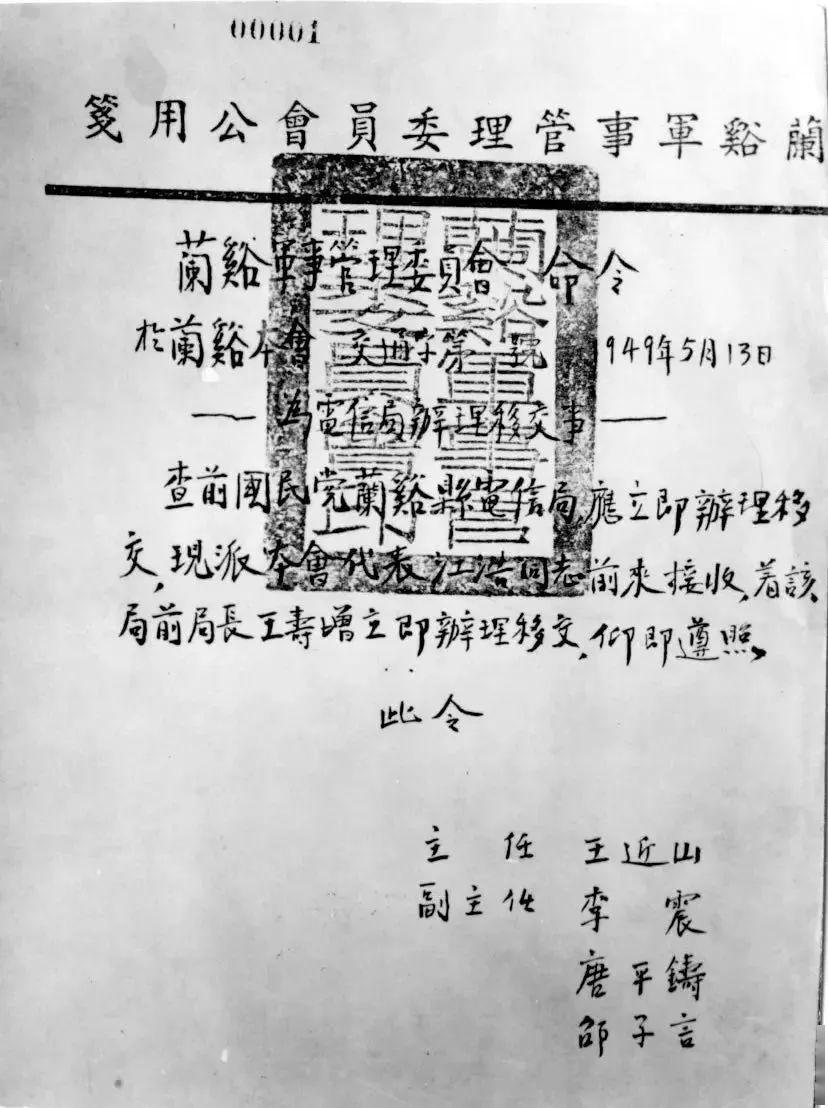 00001
蘭谿軍事管理委員會公用箋
蘭谿軍事管理委員會 命令
於蘭谿本會 交通字第 號 1949年5月13日
——為電信局辦理移交事——
查前國民党蘭谿縣電信局,應立即辦理移
交,現派本會代表江浩同志前來接收,着該
局前局長王壽增立即辦理移交,仰即遵照。
此令
主 任 王近山
副主任 李 震
唐平鑄
邵子言